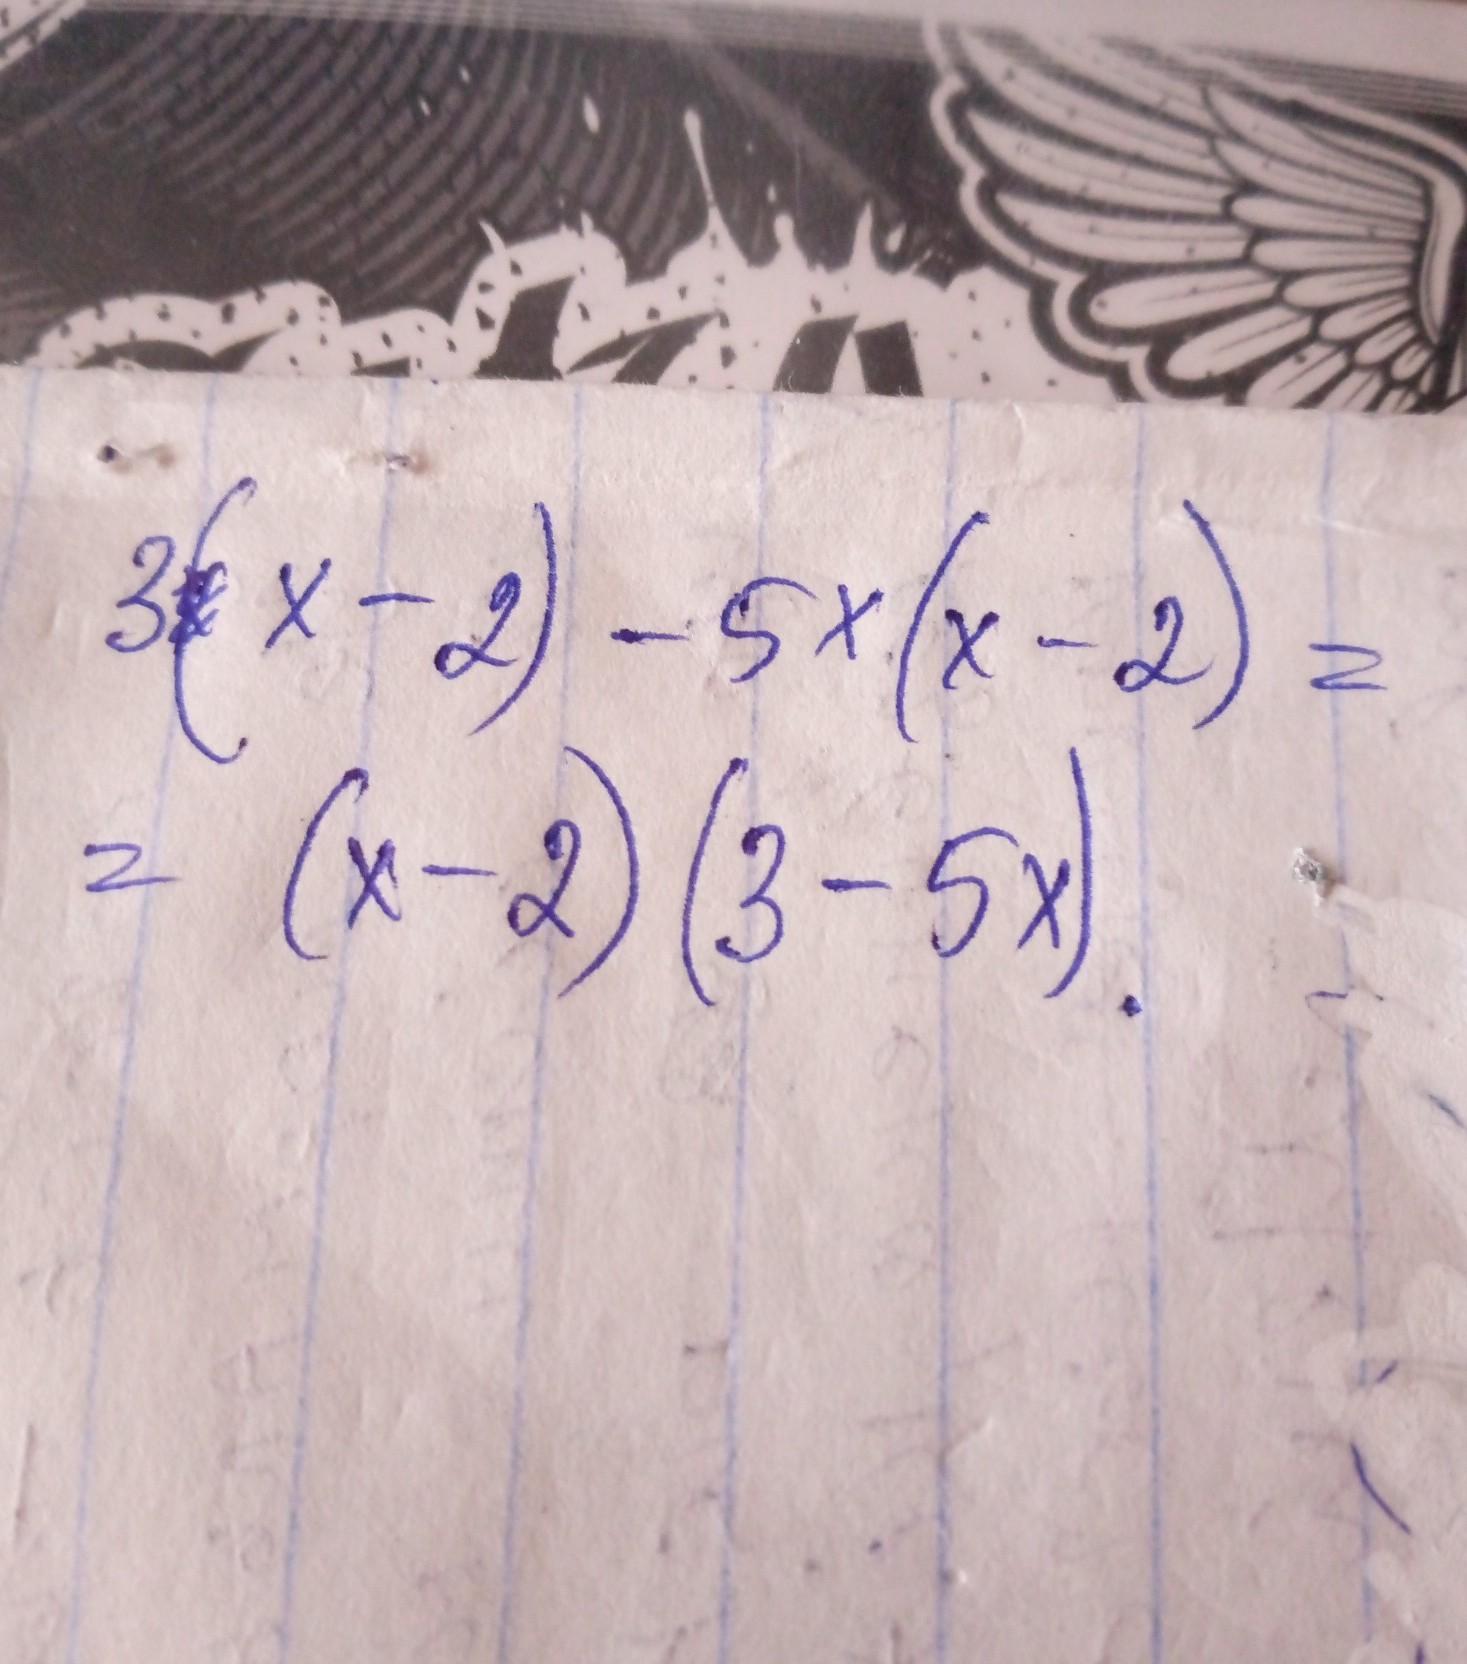 3(x-2)-5x(x-2)=
=(x-2)(3-5x).